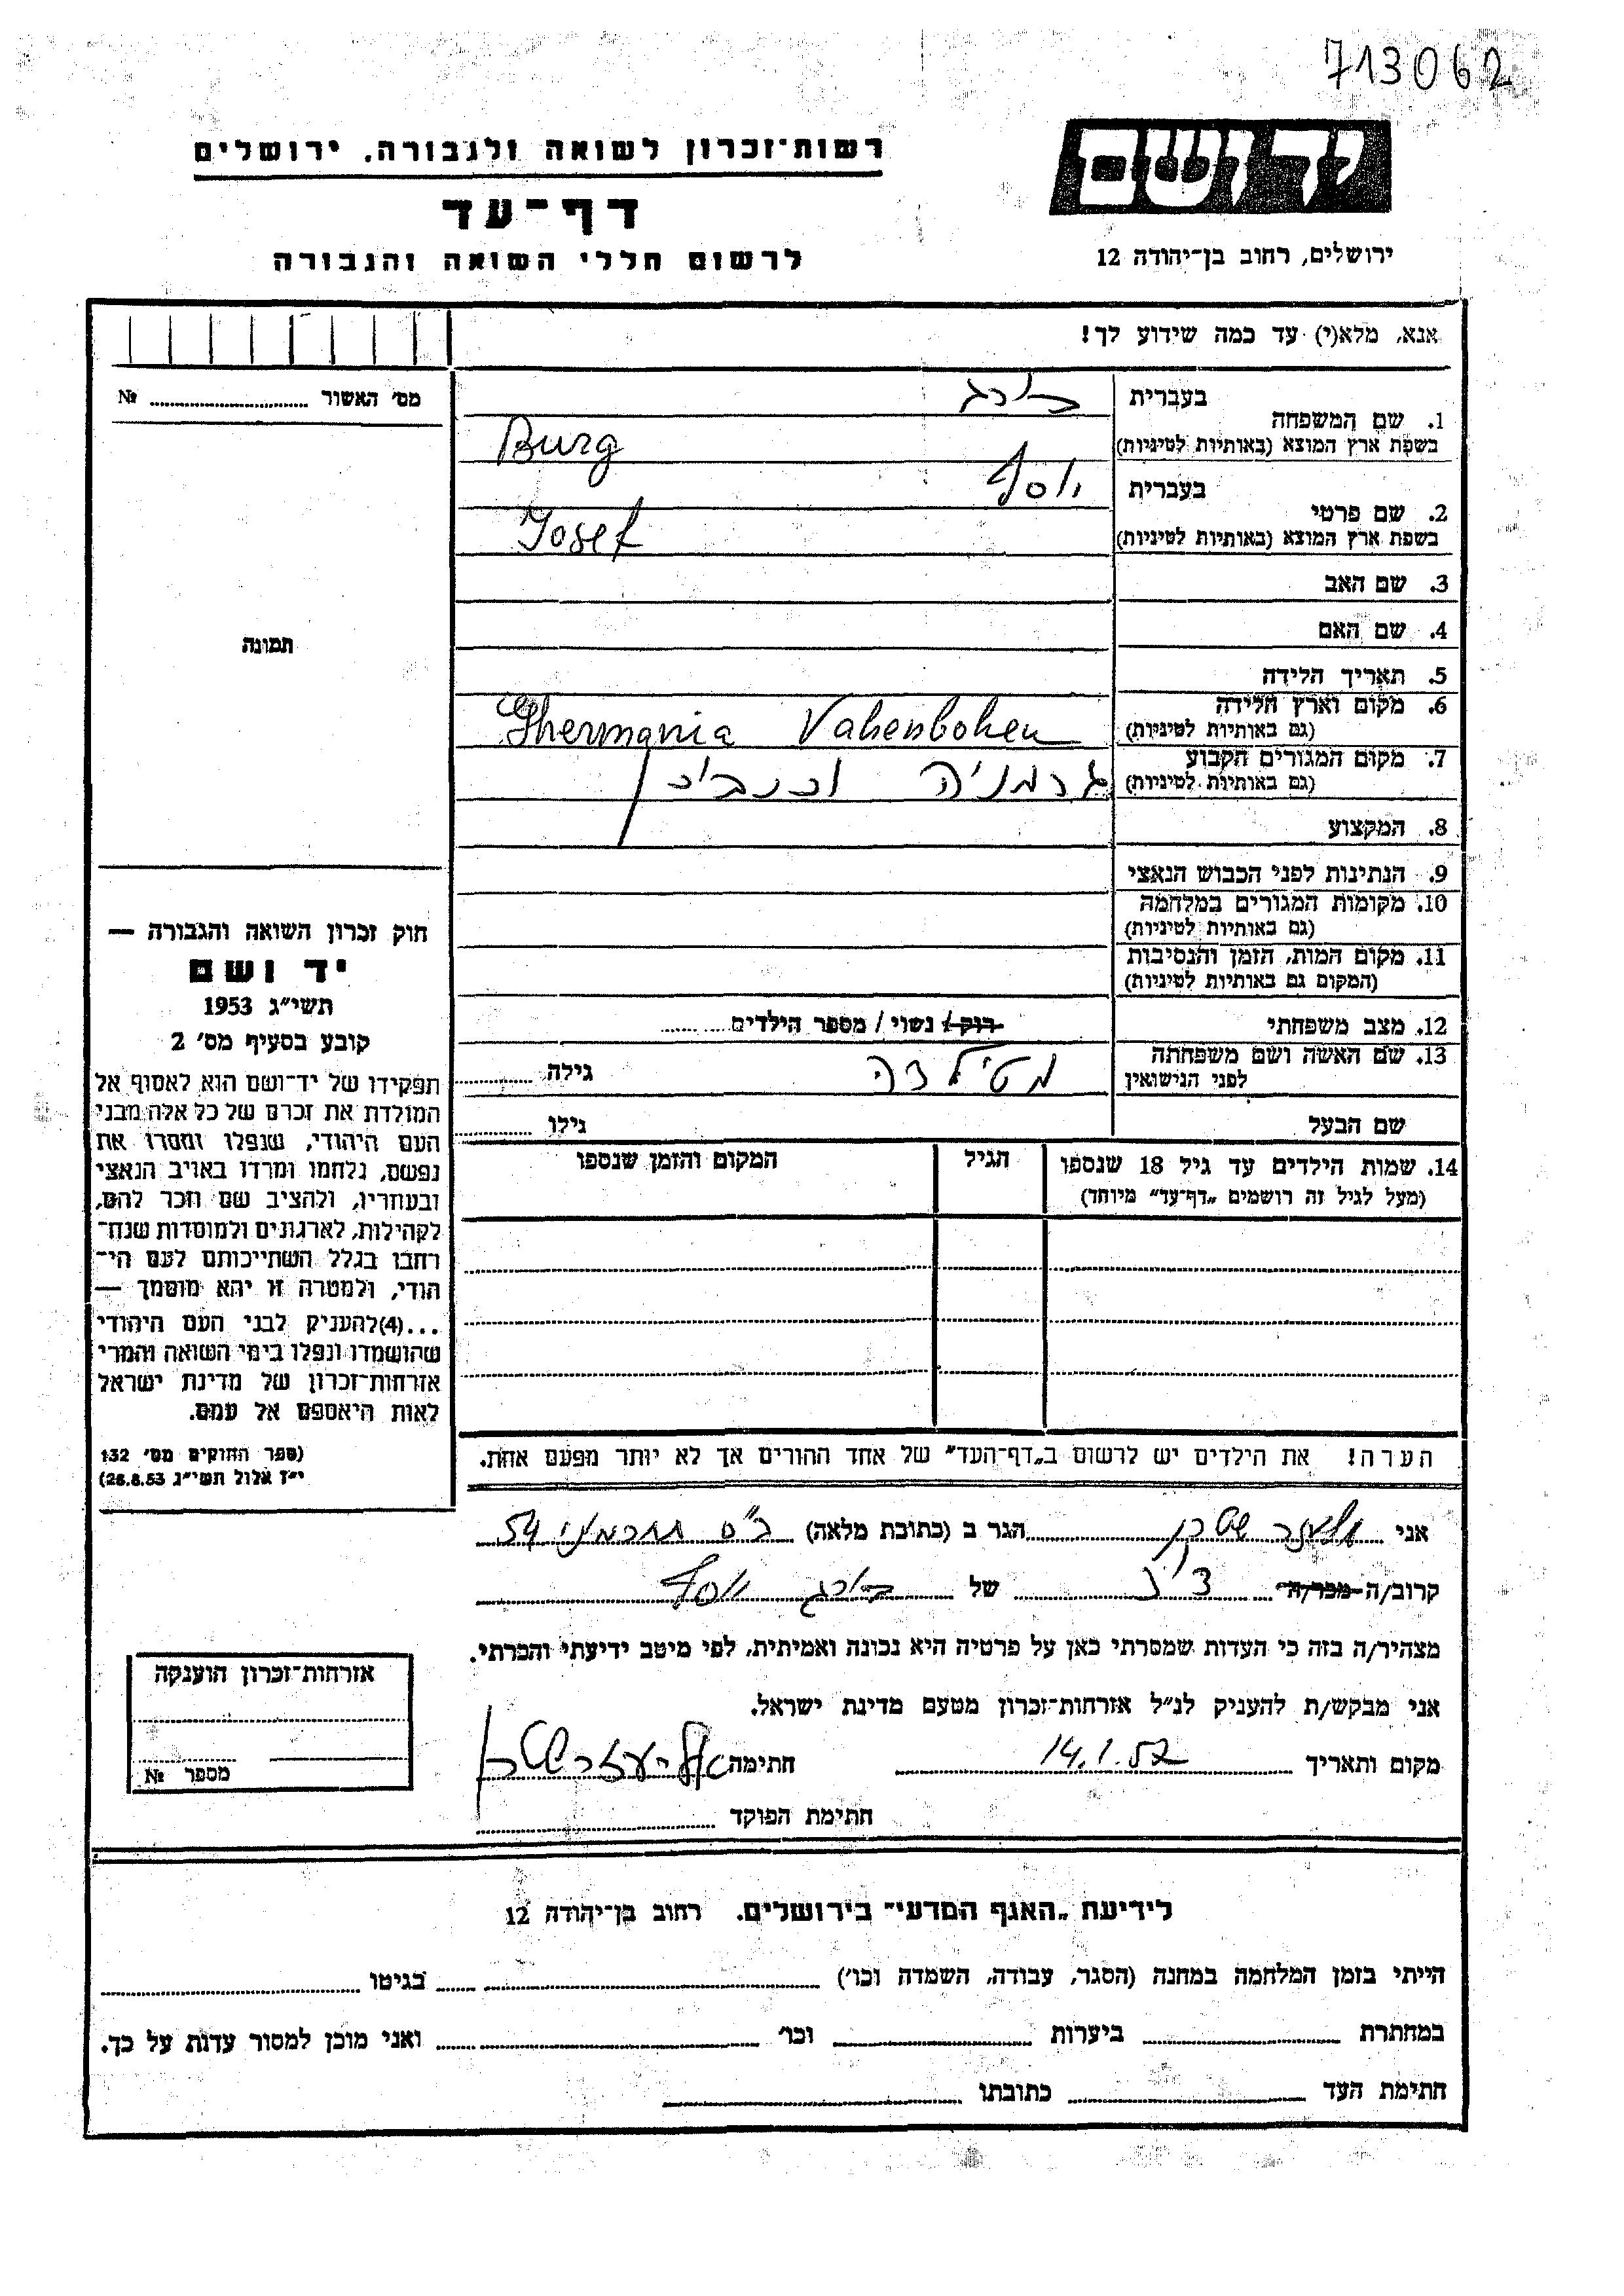 713062
רשות־זכרון לשואה ולגבורה, ירושלים
יד ושם
דף־עד
לרשום חללי השואה והגבורה
ירושלים, רחוב בן־יהודה 12
אנא, מלא(י) עד כמה שידוע לך!
מס׳ האשור № 
בעברית בורג
1. שם המשפחה
בשפת ארץ המוצא (באותיות לטיניות) Burg
בעברית יוסף
2. שם פרטי
בשפת ארץ המוצא (באותיות לטיניות) Josef
3. שם האב
4. שם האם
תמונה
5. תאריך הלידה
6. מקום וארץ הלידה
(גם באותיות לטיניות) Ghermania
7. מקום המגורים הקבוע
(גם באותיות לטיניות) גרמניה
8. המקצוע
9. הנתינות לפני הכבוש הנאצי
10. מקומות המגורים במלחמה
(גם באותיות לטיניות)
11. מקום המות, הזמן והנסיבות
(המקום גם באותיות לטיניות)
12. מצב משפחתי רוק / נשוי / מספר הילדים
13. שם האשה ושם משפחתה
לפני הנישואין מטילדה גילה
שם הבעל גילו
חוק זכרון השואה והגבורה —
יד ושם
תשי״ג 1953
קובע בסעיף מס׳ 2
תפקידו של יד־ושם הוא לאסוף אל
המולדת את זכרם של כל אלה מבני
העם היהודי, שנפלו ומסרו את
נפשם, נלחמו ומרדו באויב הנאצי
ובעוזריו, ולהציב שם וזכר להם,
לקהילות, לארגונים ולמוסדות שנח־
רבו בגלל השתייכותם לעם הי־
הודי, ולמטרה זו יהא מוסמך —
...(4)להעניק לבני העם היהודי
שהושמדו ונפלו בימי השואה והמרי
אזרחות־זכרון של מדינת ישראל
לאות היאספם אל עמם.
(ספר החוקים מס׳ 132
י״ז אלול תשי״ג 28.8.53)
14. שמות הילדים עד גיל 18 שנספו הגיל המקום והזמן שנספו
(מעל לגיל זה רושמים „דף־עד” מיוחד)
הערה! את הילדים יש לרשום ב„דף־העד” של אחד ההורים אך לא יותר מפעם אחת.
אני הגר ב (כתובת מלאה) 54
קרוב/ה מכר/ה דוד של בורג יוסף
מצהיר/ה בזה כי העדות שמסרתי כאן על פרטיה היא נכונה ואמיתית, לפי מיטב ידיעתי והכרתי.
אני מבקש/ת להעניק לנ״ל אזרחות־זכרון מטעם מדינת ישראל.
מקום ותאריך 14.1.57 חתימה
חתימת הפוקד
אזרחות־זכרון הוענקה
מספר №
לידיעת „האגף המדעי” בירושלים. רחוב בן־יהודה 12
הייתי בזמן המלחמה במחנה (הסגר, עבודה, השמדה וכו׳) בגיטו
במחתרת ביערות וכו׳ ואני מוכן למסור עדות על כך.
חתימת העד כתובתו